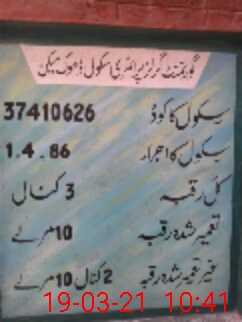 گورنمنٹ گرلز پرائمری سکول ڈھوک میکن
سکول کا کوڈ 37410626
سکول کا اجراء 1.4.86
کل رقبہ 3 کنال
تعمیر شدہ رقبہ 10 مرلے
غیر تعمیر شدہ رقبہ 2 کنال 10 مرلے
19-03-21 10:41